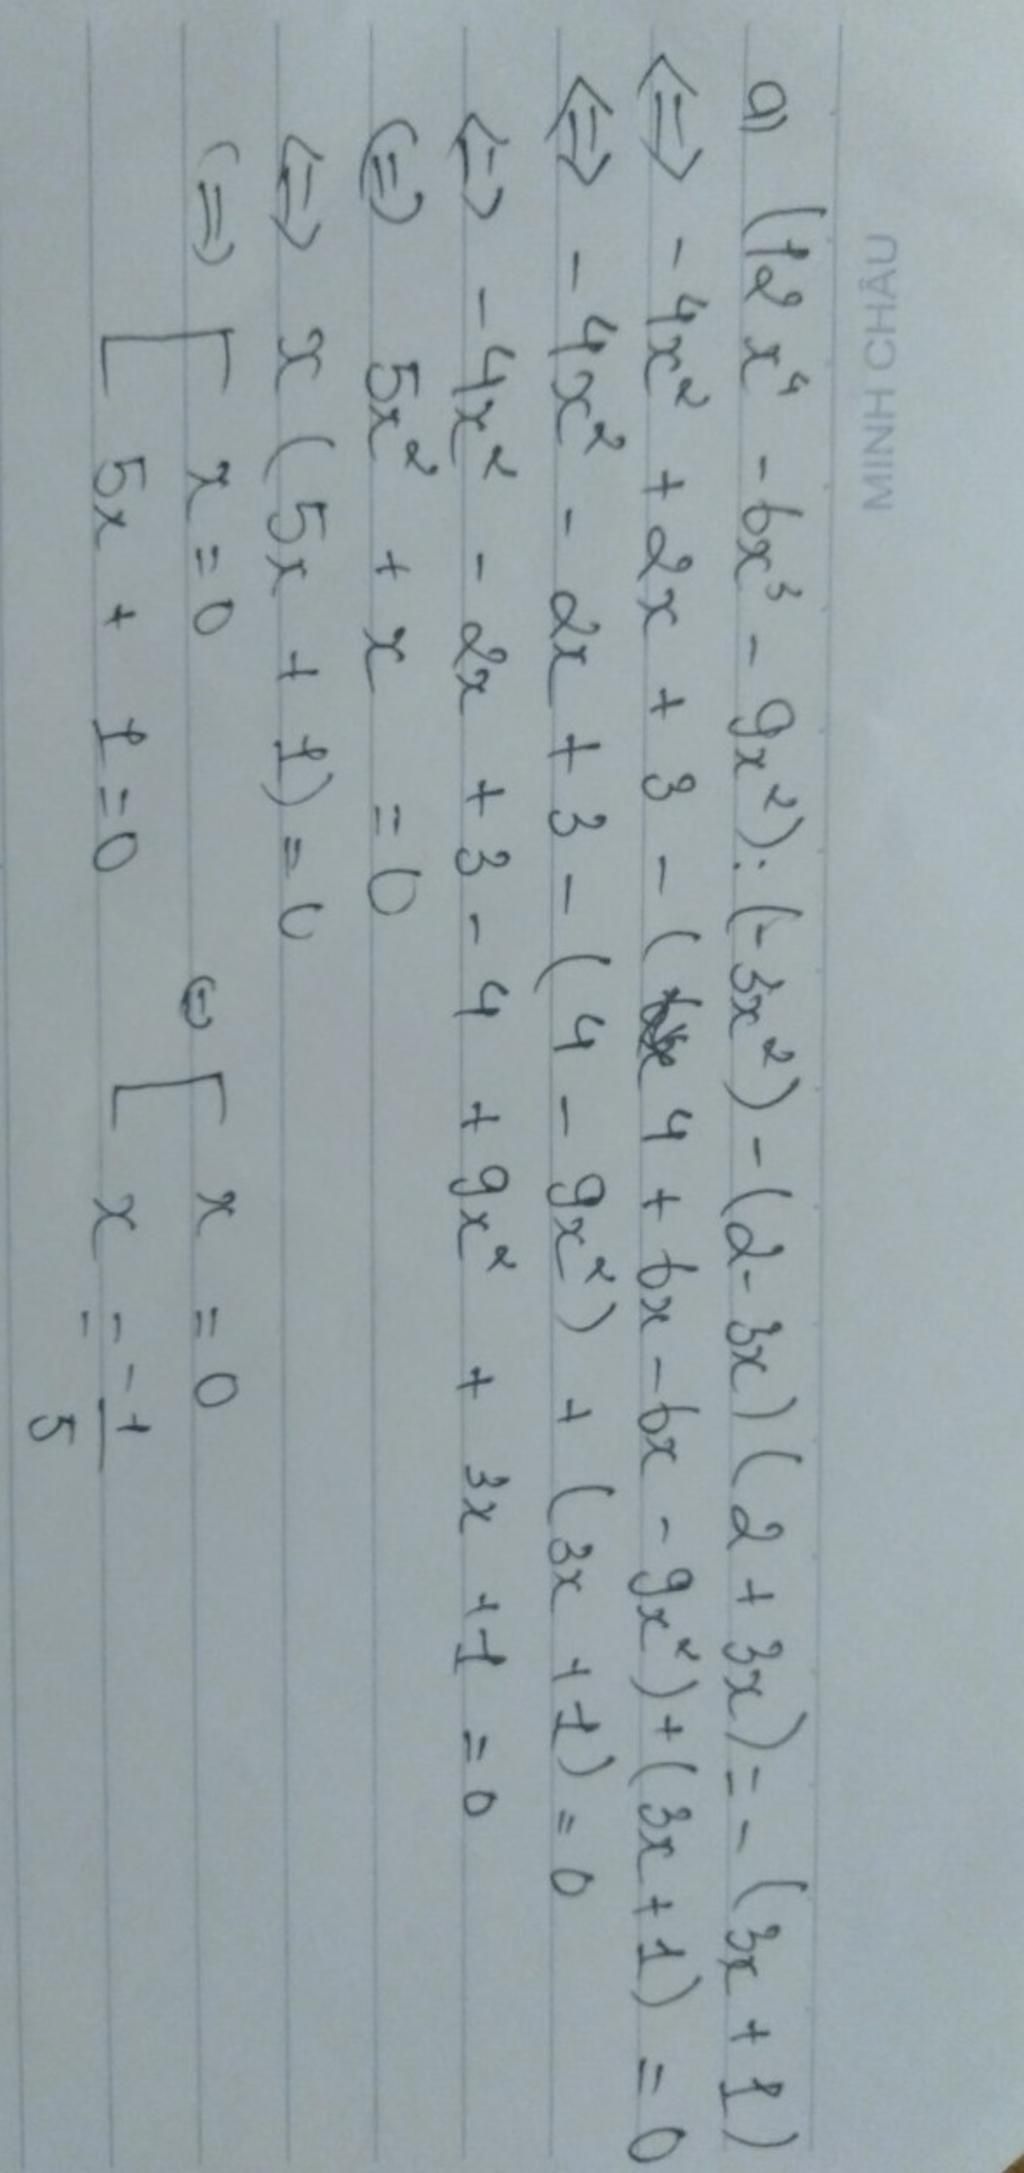 MINH CHÂU
a) (12x⁴ - 6x³ - 9x²) : (-3x²) - (2 - 3x)(2 + 3x) = - (3x + 1)
<=> - 4x² + 2x + 3 - (4 + 6x - 6x - 9x²) + (3x + 1) = 0
<=> - 4x² - 2x + 3 - (4 - 9x²) + (3x + 1) = 0
<=> - 4x² - 2x + 3 - 4 + 9x² + 3x + 1 = 0
<=> 5x² + x = 0
<=> x (5x + 1) = 0
<=> [ x = 0 <=> [ x = 0
5x + 1 = 0 x = -1/5